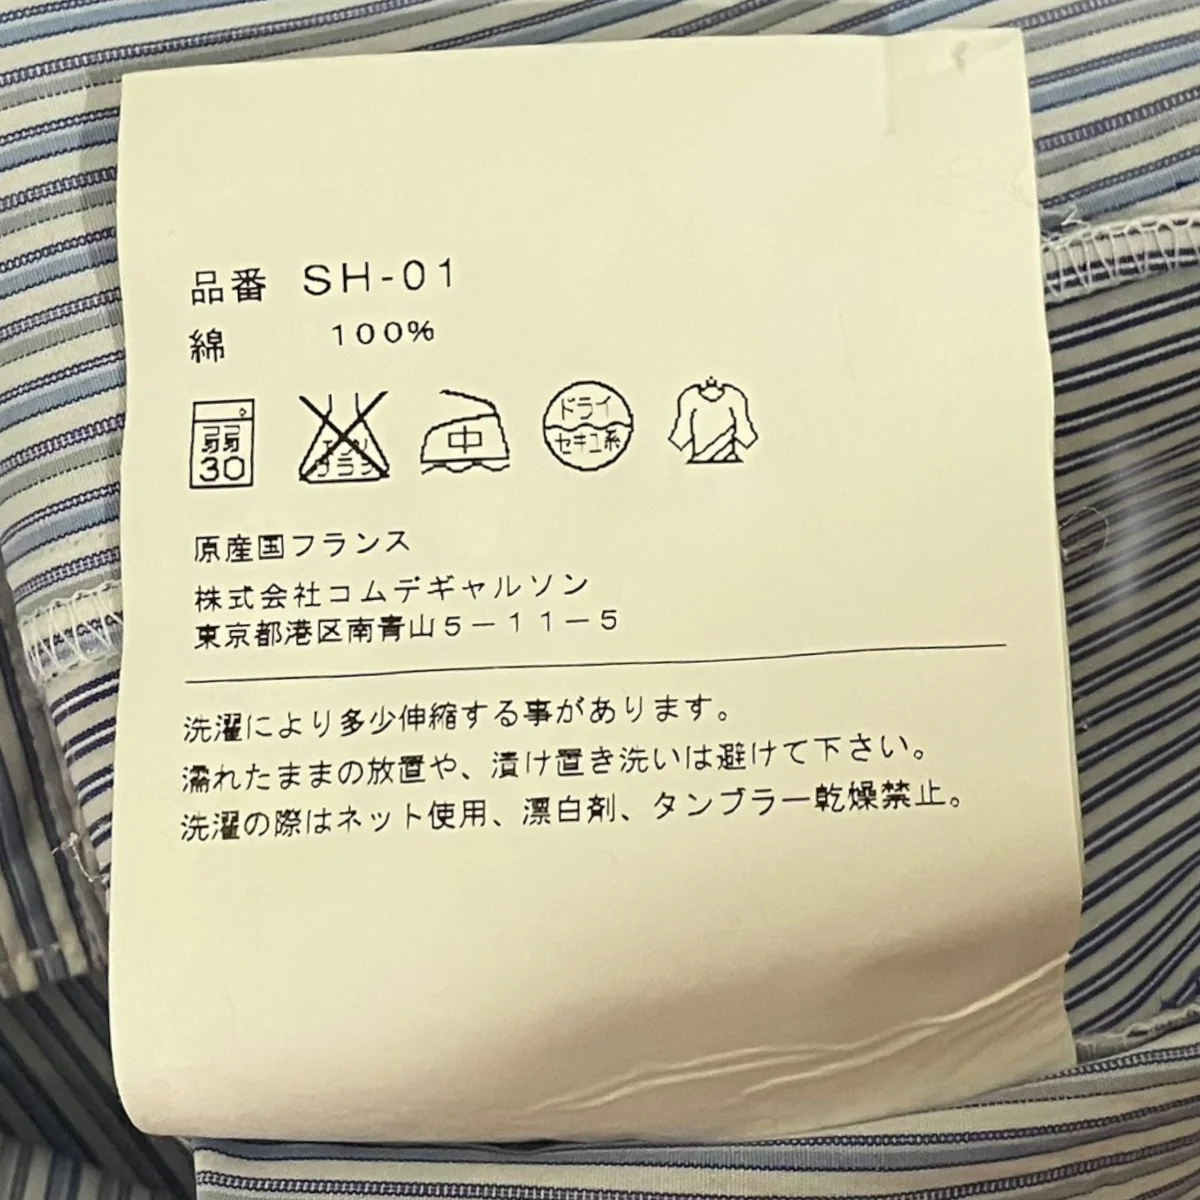 品番 SH-01
綿 100%
弱
30
エンソ
サラシ
中
ドライ
セキユ系
原産国フランス
株式会社コムデギャルソン
東京都港区南青山5-11-5
洗濯により多少伸縮する事があります。
濡れたままの放置や、漬け置き洗いは避けて下さい。
洗濯の際はネット使用、漂白剤、タンブラー乾燥禁止。